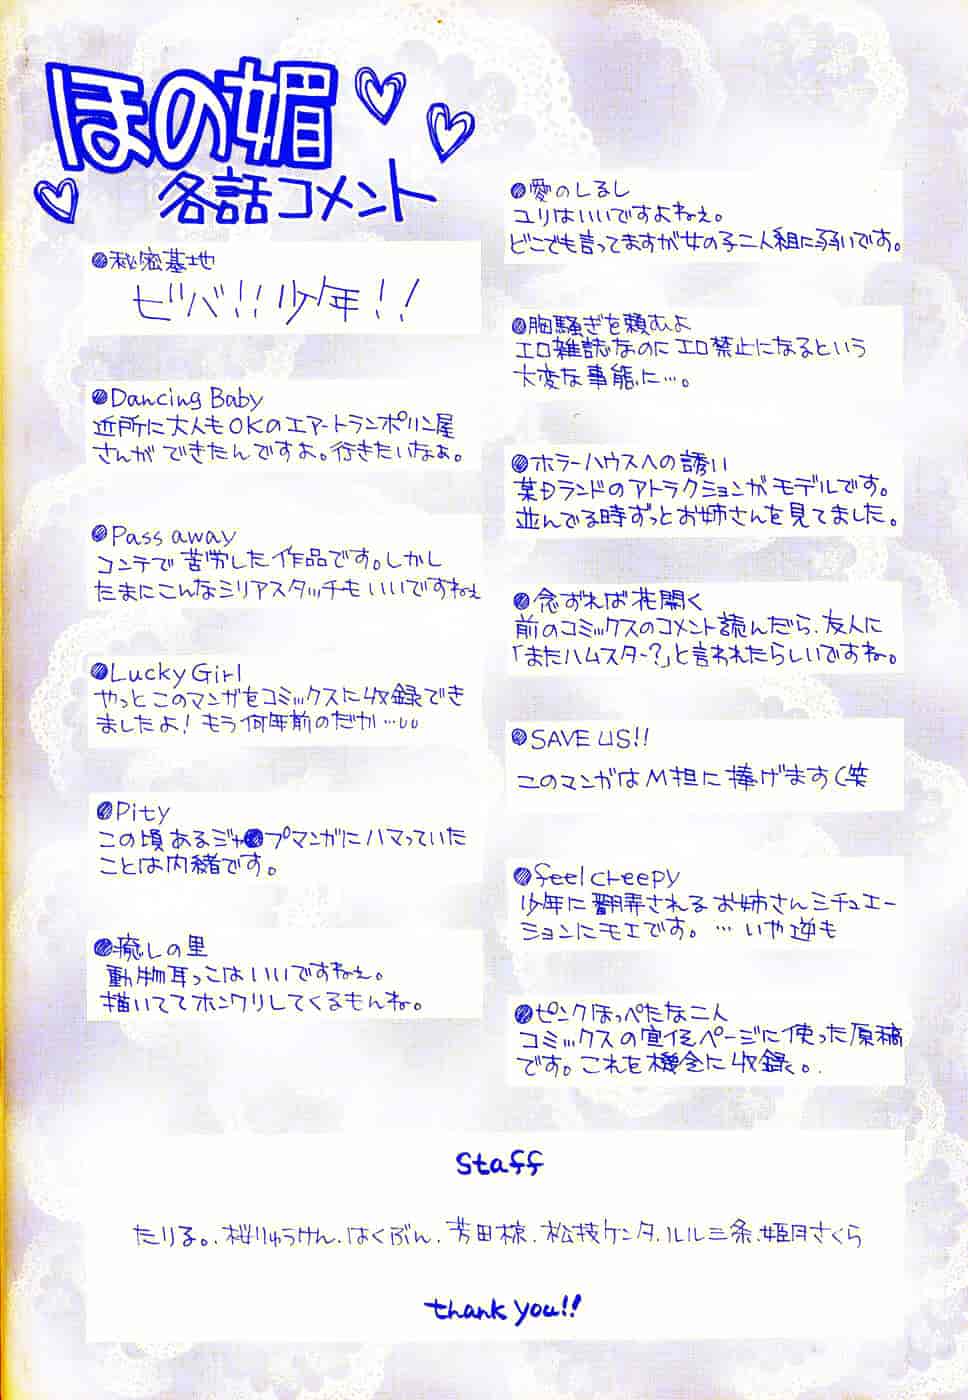 ほの媚
各話コメント
●秘密基地
ビバ!!少年!!
●Dancing Baby
近所に大人もOKのエアートランポリン屋
さんができたんですよ。行きたいなぁ。
●Pass away
コンテで苦労した作品です。しかし
たまにこんなシリアスタッチもいいですねぇ
●Lucky Girl
やっとこのマンガをコミックスに収録でき
ましたよ!もう何年前のだか…
●Pity
この頃あるジャ●プマンガにハマっていた
ことは内緒です。
●癒しの里
動物耳っこはいいですねぇ。
描いててホンワリしてくるもんね。
●愛のしるし
ユリはいいですよねぇ。
どこでも言ってますが女の子二人組に弱いです。
●胸騒ぎを頼むよ
エロ雑誌なのにエロ禁止になるという
大変な事態に…。
●ホラーハウスへの誘い
某Dランドのアトラクションがモデルです。
並んでる時ずっとお姉さんを見てました。
●念ずれば花開く
前のコミックスのコメント読んだら、友人に
「またハムスター?」と言われたらしいですね。
●SAVE US!!
このマンガはM担に捧げます(笑
●feel creepy
少年に翻弄されるお姉さんシチュエー
ションにモエです。…いや逆も
●ピンクほっぺたな二人
コミックスの宣伝ページに使った原稿
です。これを機会に収録。
Staff
たりる。.桜りゅうけん.はくぶん.芳田椋.松枝ケンタ.ルル三条.姫月さくら
thank you!!